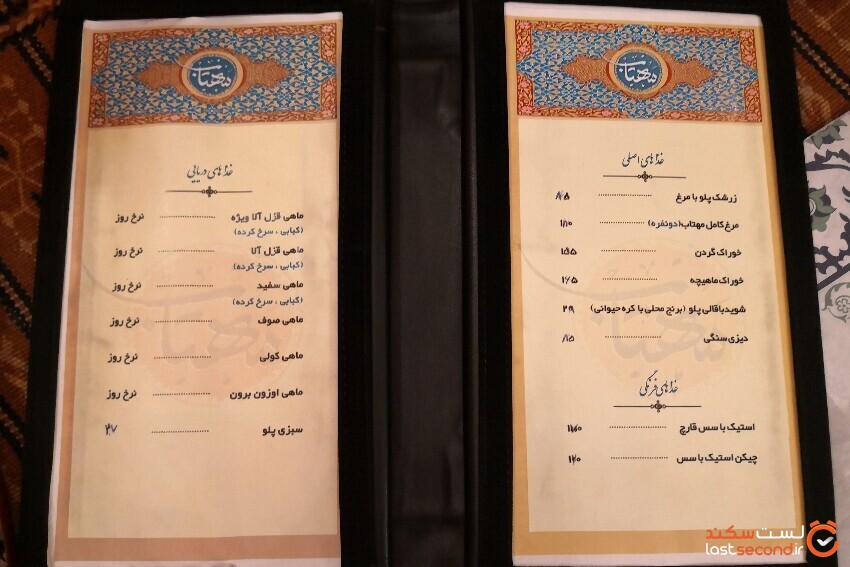 مهتاب
غذاهای اصلی
زرشک پلو با مرغ
مرغ کامل مهتاب (دونفره) ۱۱۰
خوراک گردن
خوراک ماهیچه
شوید باقالی پلو (برنج محلی با کره حیوانی)
دیزی سنگی
غذاهای فرنگی
استیک با سس قارچ
چیکن استیک با سس
مهتاب
غذاهای دریایی
ماهی قزل آلا ویژه نرخ روز
(کبابی ، سرخ کرده)
ماهی قزل آلا نرخ روز
(کبابی ، سرخ کرده)
ماهی سفید نرخ روز
(کبابی ، سرخ کرده)
ماهی صوف نرخ روز
ماهی کولی نرخ روز
ماهی اوزون برون نرخ روز
سبزی پلو ۲۷
لست سکند
lastsecond.ir